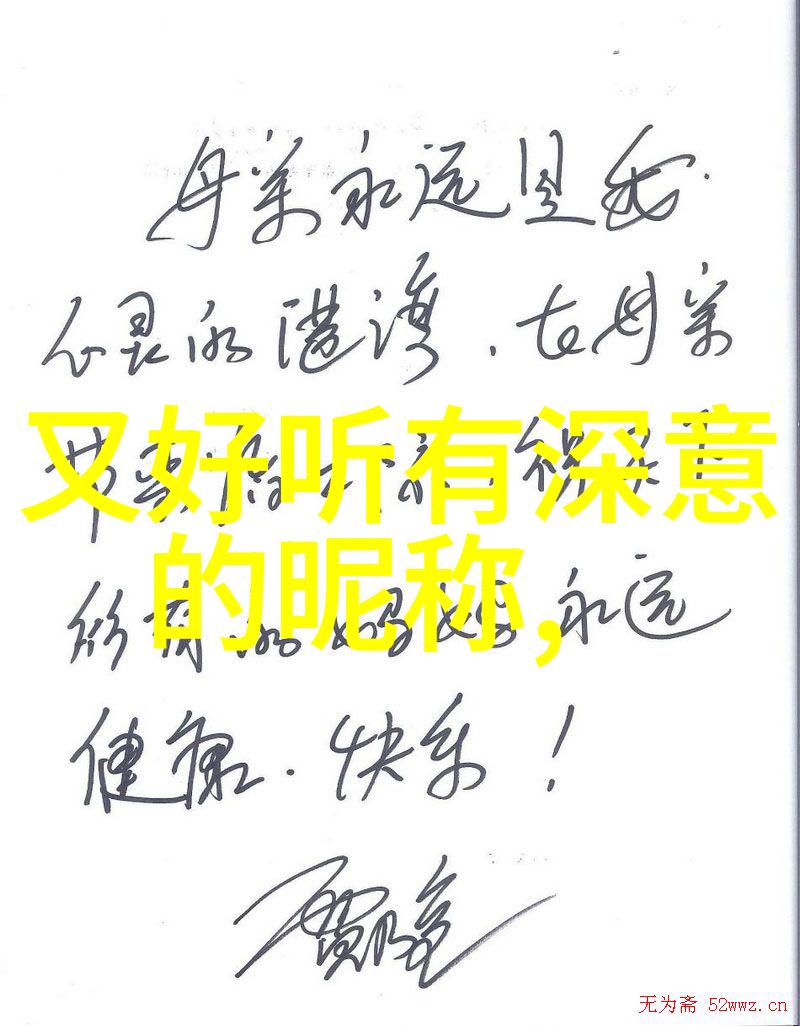 母亲永远是我
心灵的港湾，在母亲
节
又好听有深意
的昵称,
所有的妈妈永远
健康.快乐！
无为斋 52wwz.cn